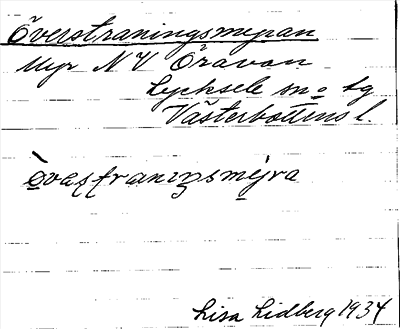 Överstraningsmyran
Myr NV Öravan
Lycksele sn o tg
Västerbottens l.
òvaʂʈraniŋsmýra
Lisa Lidberg 1934